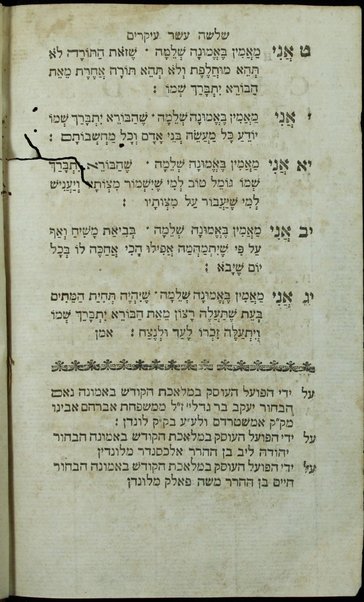 שלשה עשר עיקרים
ט אֲנִי מַאֲמִין בֶּאֱמוּנָה שְׁלֵמָה · שֶׁזֹאת הַתּוֹרָה לֹא
תְּהֵא מוּחְלֶפֶת וְלֹא תְּהֵא תּוֹרָה אַחֶרֶת מֵאֵת
הַבּוֹרֵא יִתְבָּרַךְ שְׁמוֹ :
י אֲנִי מַאֲמִין בֶּאֱמוּנָה שְׁלֵמָה · שֶׁהַבּוֹרֵא יִתְבָּרַךְ שְׁמוֹ
יוֹדֵעַ כָּל מַעֲשֵׂה בְּנֵי אָדָם וְכָל מַחְשְׁבוֹתָם :
יא אֲנִי מַאֲמִין בֶּאֱמוּנָה שְׁלֵמָה · שֶׁהַבּוֹרֵא יִתְבָּרַךְ
שְׁמוֹ גּוֹמֵל טוֹב לְמִי שֶׁיִּשְׁמוֹר מִצְוֹתָיו וְיַעֲנִישׁ
לְמִי שֶׁיַּעֲבוֹר עַל מִצְוֹתָיו :
יב אֲנִי מַאֲמִין בֶּאֱמוּנָה שְׁלֵמָה · בְּבִיאַת מָשִׁיחַ וְאַף
עַל פִּי שֶׁיִּתְמַהְמֵהַּ אֲפִילוּ הָכִי אֲחַכֶּה לוֹ בְּכָל
יוֹם שֶׁיָּבֹא :
יג אֲנִי מַאֲמִין בֶּאֱמוּנָה שְׁלֵמָה · שֶׁיִּהְיֶה תְּחִיַּת הַמֵּתִים
בָּעֵת שֶׁתַּעֲלֶה רָצוֹן מֵאֵת הַבּוֹרֵא יִתְבָּרַךְ שְׁמוֹ
וְיִתְעַלֶּה זִכְרוֹ לָעַד וְלָנֶצַח : אמן
על ידי הפועל העוסק במלאכת הקודש באמונה נאם
הבחור יעקב בר גדליי' ז"ל ממשפחת אברהם אבינו
מק"ק אמשטרדם ולע"ע בק"ק לונדן :
על ידי הפועל העוסק במלאכת הקודש באמונה הבחור
יהודה ליב בן ההרר אלכסנדר מלונדין
על ידי הפועל העוסק במלאכת הקודש באמונה הבחור
חיים בן ההרר משה פאלק מלונדן :